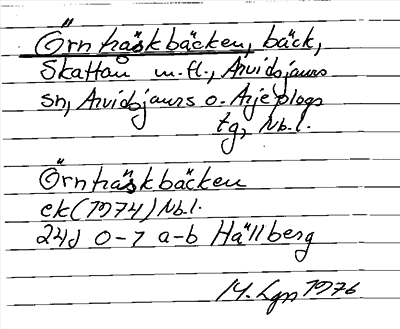 Örnträskbäcken, bäck,
Skattån m.fl., Arvidsjaurs
sn, Arvidsjaurs o. Arjeplogs
tg, Nb.l.
Örnträskbäcken
ek (1974) Nb.l.
24J 0-7 a-b Hällberg
14. 1976